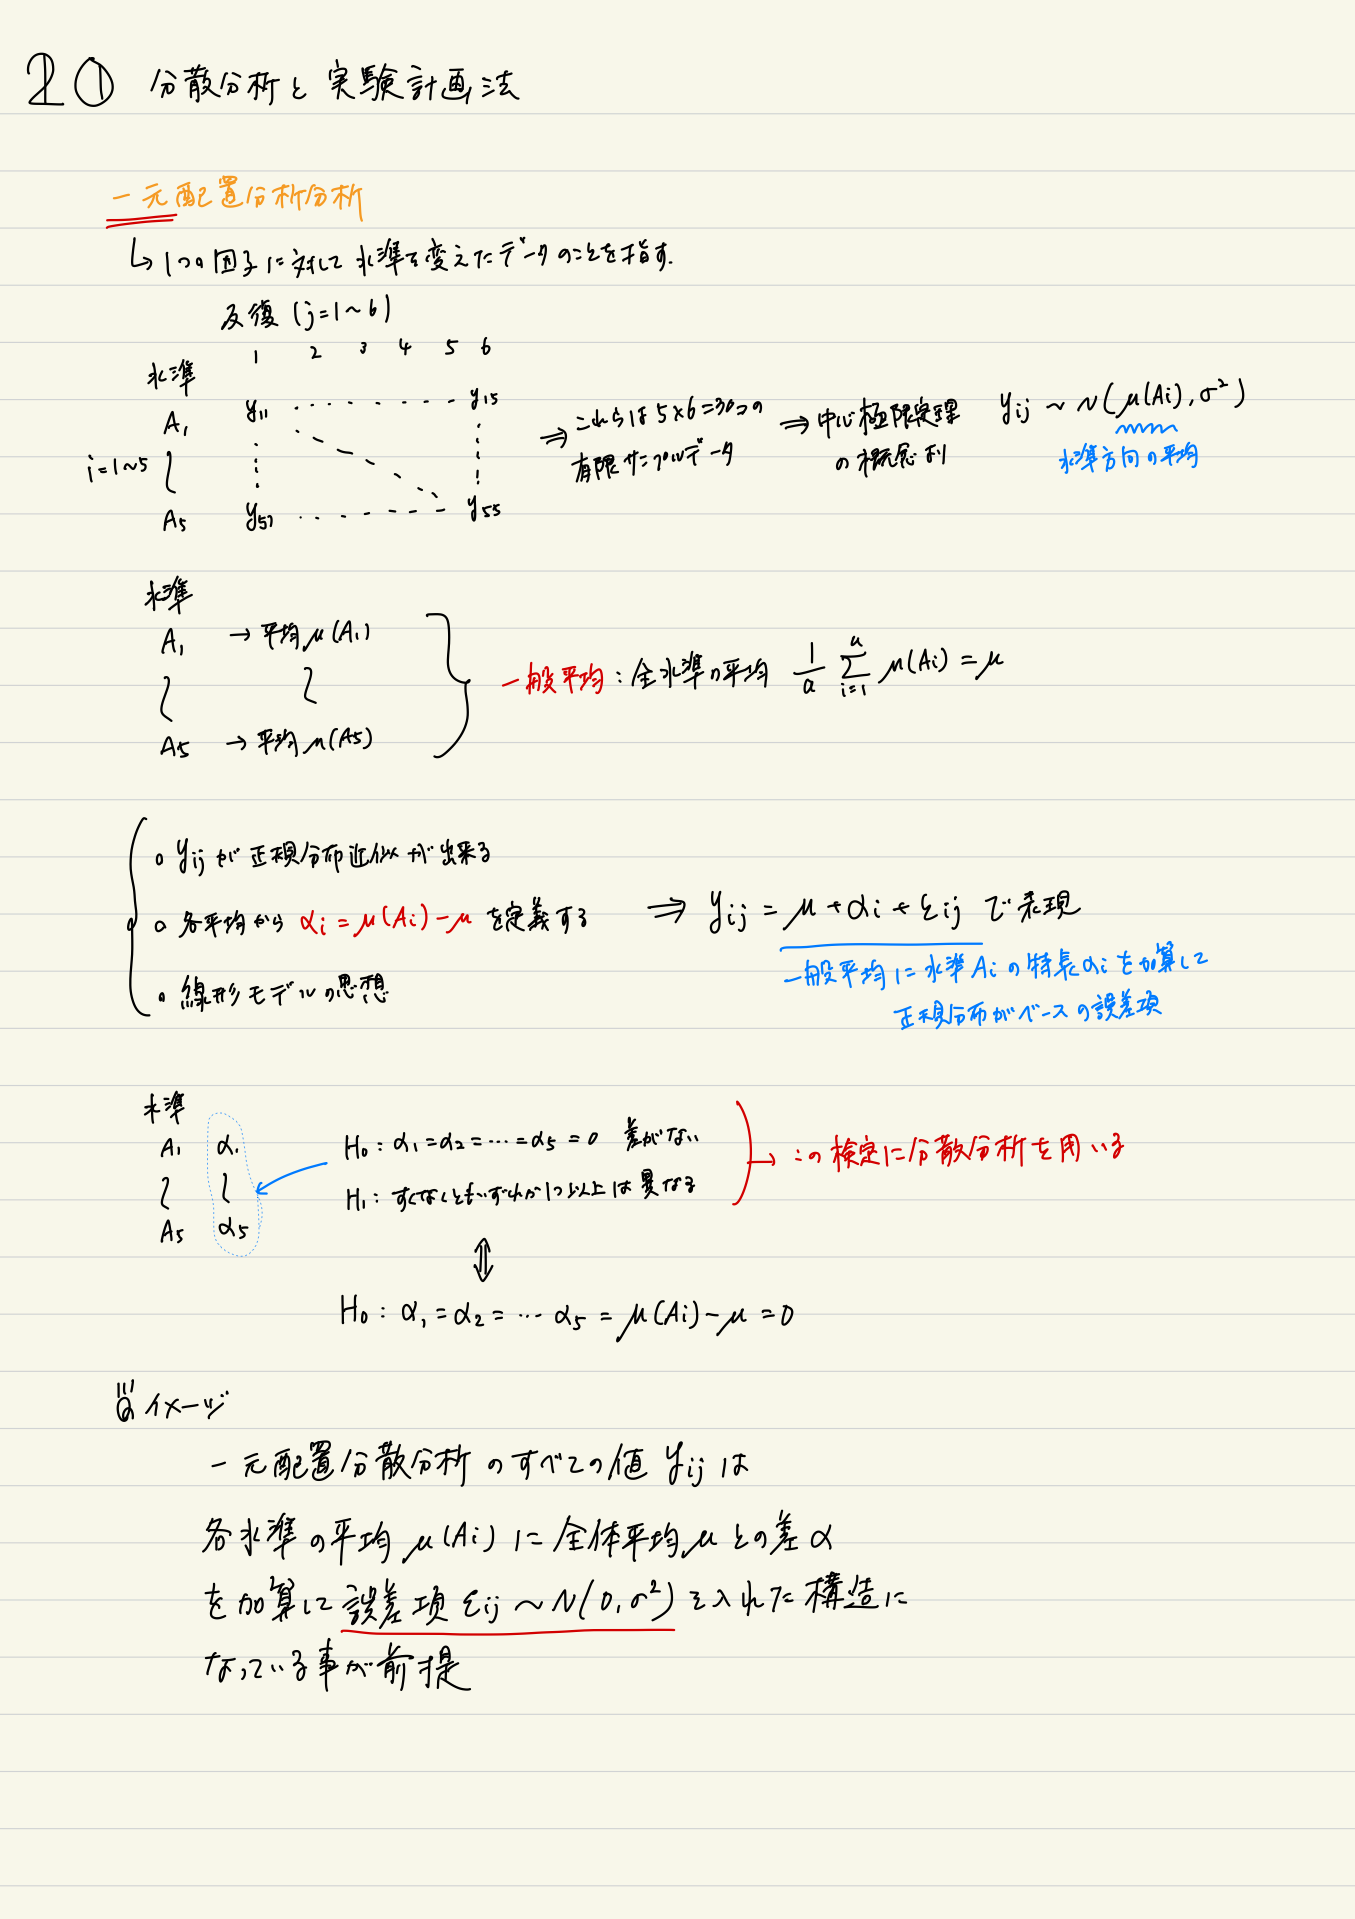 20 分散分析と実験計画法
一元配置分析分析
↳ 1つの因子に対して水準を変えたデータのことを指す.
反復 (j=1~6)
水準 1 2 3 4 5 6
A₁ y₁₁ ・・・・・・・ y₁₅
i=1~5
A₅ y₅₁ ・・・・・・ y₅₅
⇒ これらは5×6=30コの
有限サンプルデータ
⇒ 中心極限定理
の概念より
yij ~ N(μ(Ai), σ²)
水準方向の平均
水準
A₁ → 平均μ(A₁)
A₅ → 平均μ(A5)
一般平均 : 全水準の平均 1/a Σ_{i=1}^{a} μ(Ai) = μ
○ yij が正規分布近似が出来る
○ 各平均から αi = μ(Ai)-μ を定義する
○ 線形モデルの思想
⇒ yij = μ + αi + εij で表現
一般平均に水準Aiの特長αiを加算して
正規分布がベースの誤差項
水準
A₁ α₁
A₅ α₅
H₀ : α₁=α₂=…=α₅=0 差がない
H₁ : すくなくともいずれか1つ以上は異なる
→ この検定に分散分析を用いる
⇕
H₀ : α₁=α₂=…α₅=μ(Ai)-μ=0
イメージ
一元配置分散分析のすべての値 yij は
各水準の平均μ(Ai)に全体平均μとの差α
を加算して誤差項 εij ~ N(0,σ²) を入れた構造に
なっている事が前提